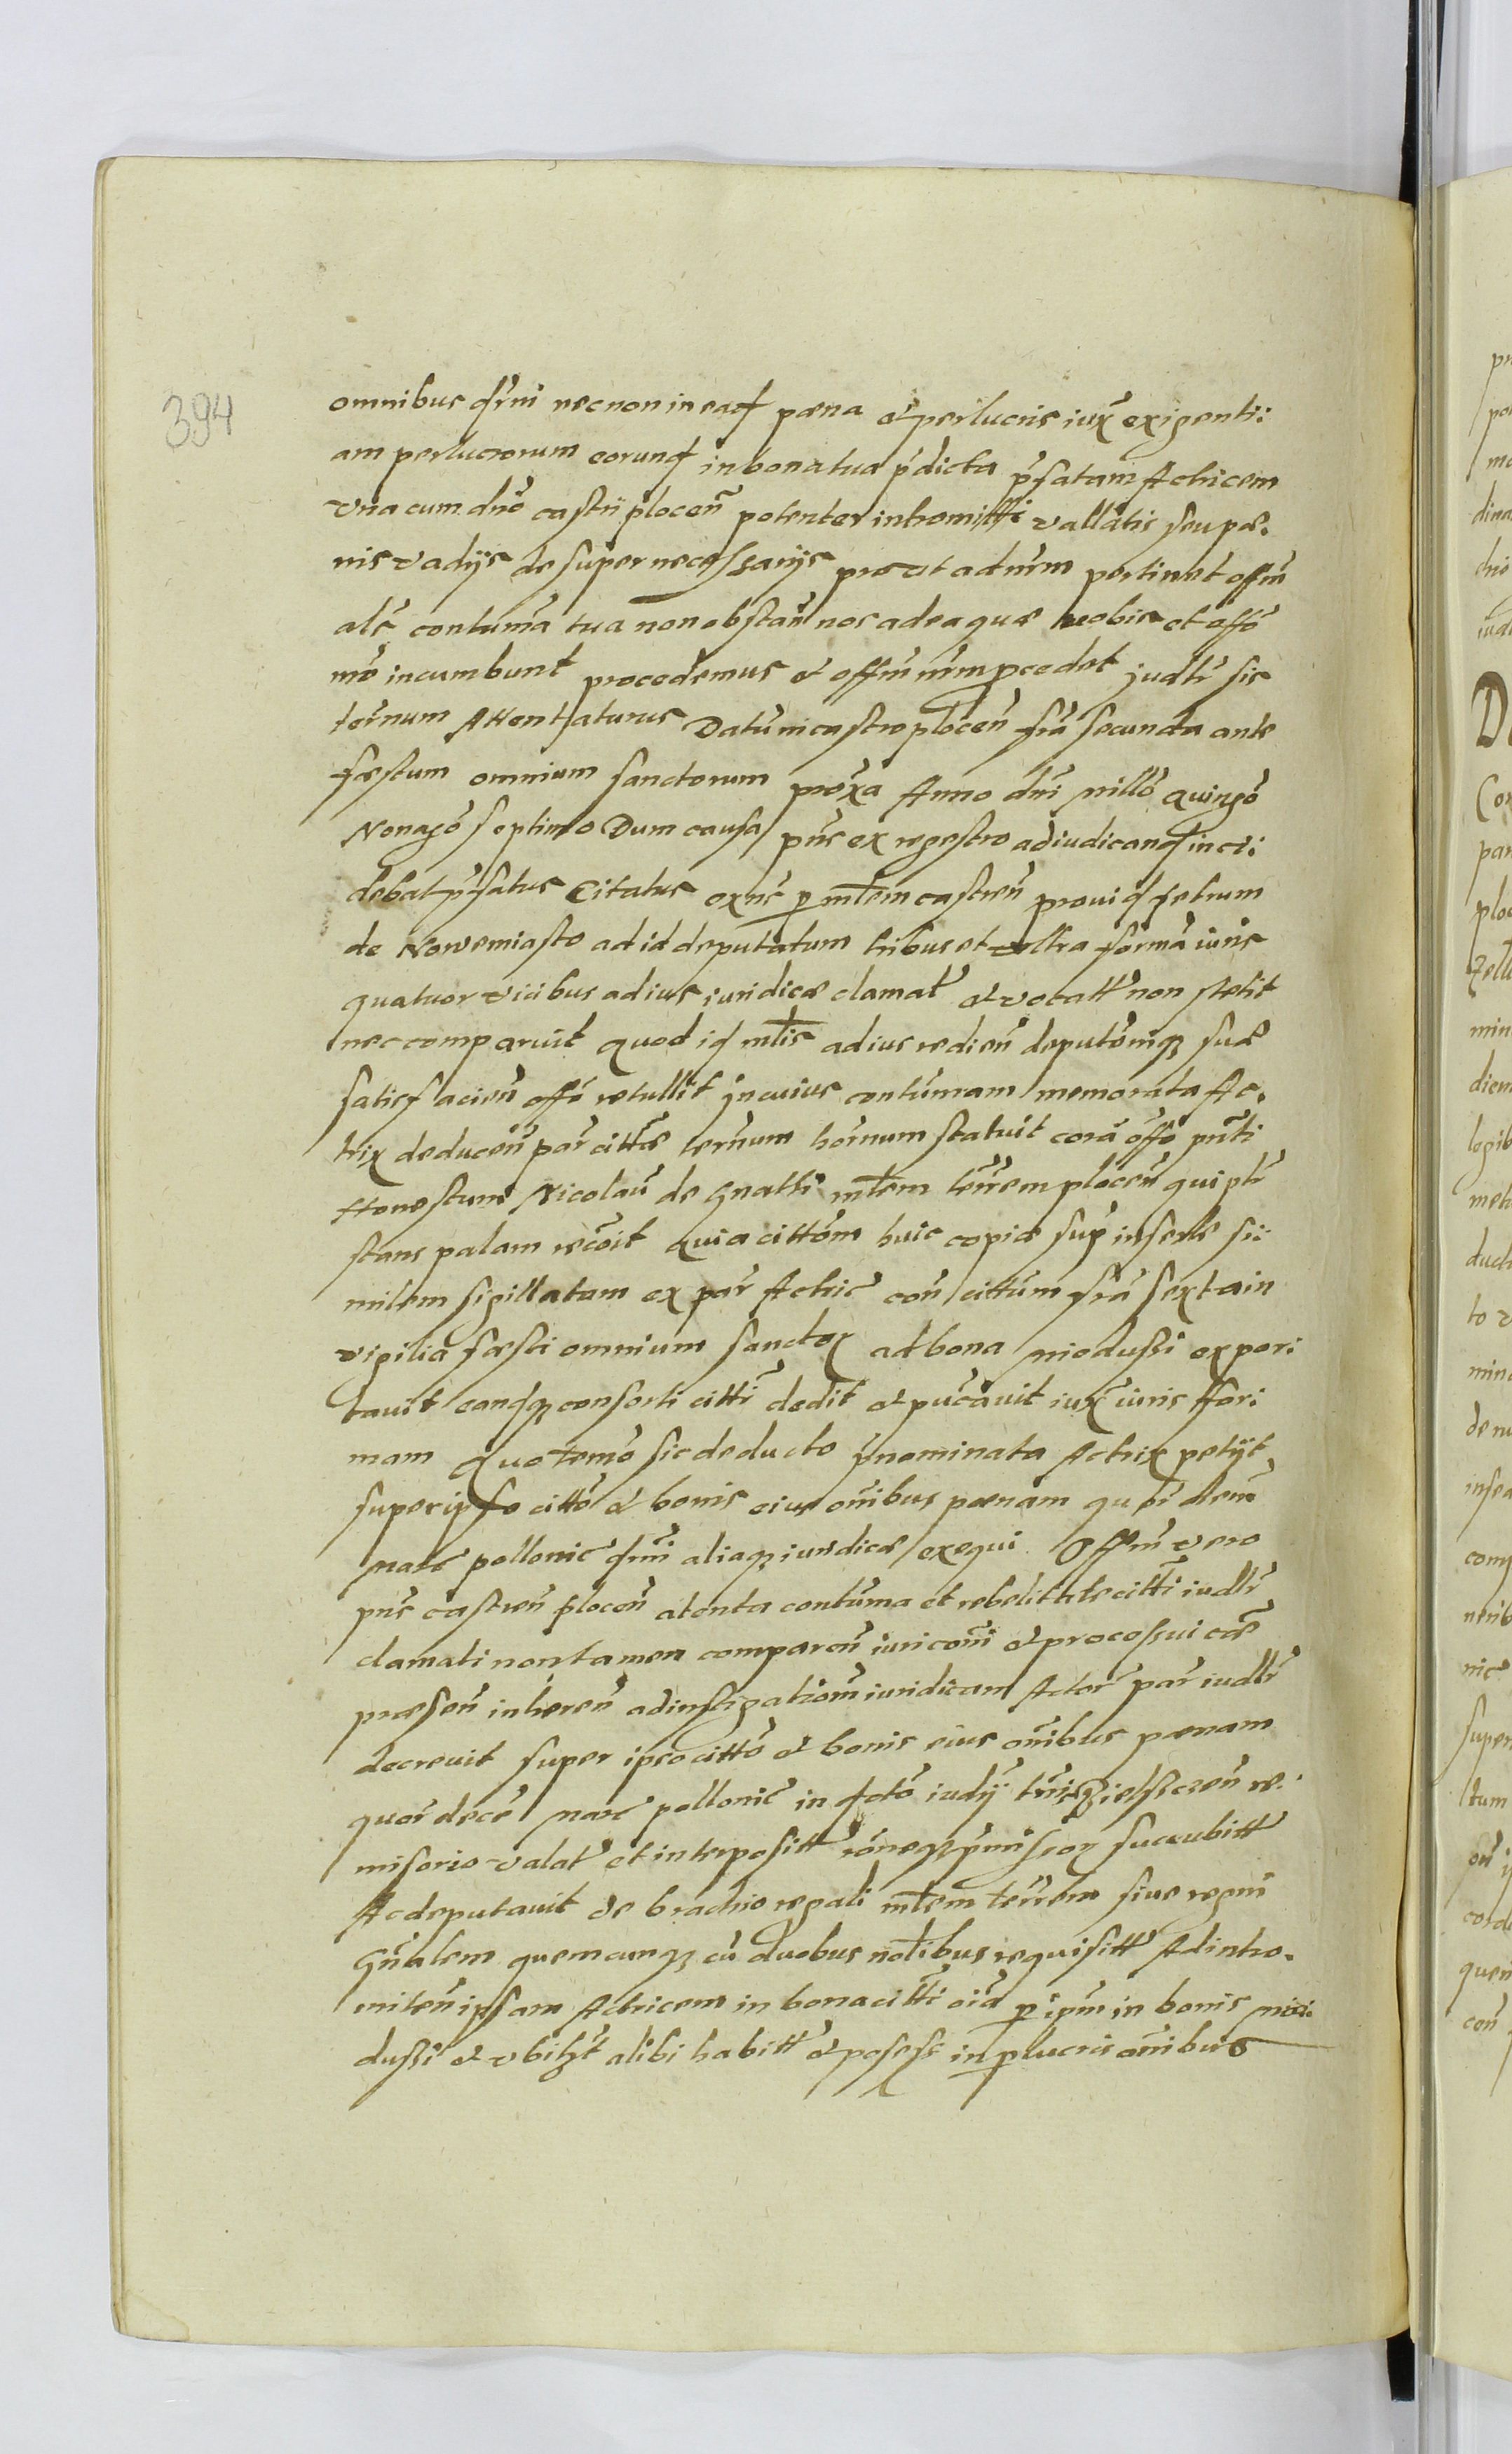 394
omnibus qrni necnon in eadꝭ pæna et perlucris iux̃ exigenti:
am perlucrorum eorundꝭ in bona tua p̃dicta p̃fatam Actricem
vna cum dño castri plocen̄ potenter intromitti vallatis seu pæ:
nis vadijs de super necessarijs prout ad nr̃m pertinet offm̃
als contumã tua non obstan̄ nos ad ea quæ nobis et offo
nr̃o incumbunt procedemus et offm̃ nr̃m p̱cedet judlr̃ sic
ter̃num Attentaturus Datũ in castro plocen̄ fr̃ia secunda ante
fæstum omnium sanctorum prox̃a Anno dñi millo quingo
Nonago septimo Dum causa pñs ex regestro adiudicandꝭ inci:
debat p̃fatus Citatus exns̃ p̱ mr̃lem castren̄ prouidꝭ petrum
de Nowemiasto ad id deputatum tribus et vltra formã iuris
quatuor vicibus ad ius iuridicæ clamat̃ et vocatt̃ non stetit
nec comparuit quod idꝭ mtris ad ius redien̄ deputomqꝫ suæ
satisfacien̄ offo retullit jn cuius contumam memorata Ac:
trix deducen̄ par̃ cittæ ter̃num hor̃num statuit corã offo pñti
Honestum Nicolaũ de Gnatti mtlem terr̃em plocen̄ qui ptr̃
stans palam reco͠it quia cittom̃ huic copiæ sup̃ insertæ si:
milem sigillatam ex par̃ Actric̃ con̄ cittum fr̃ia sexta in
vigilia fæsti omnium sanctoꝝ ad bona nieduſsi expor:
tauit eandꝭqꝫ consorti citti dedit et pucauit iux̃ iuris ffor:
mam Quo term̃o sic deducto p̃nominata Actrix petijt
super ipso citto et bonis eius om̃ibus pænam quor̃ decem̃
marc̃ pollonic̃ qrni aliaqꝫ iuridicæ exequi Offm̃ vero
pñs castren̄ plocen̄ atenta contuma et rebelittate citti iudlr̃
clamati non tamen comparen̄ iuri com̃i et processui cæ
præsen̄ inheren̄ ad instigationem̃ iuridicam Actor̃ par̃ iudlr̃
decreuit super ipso citto et bonis eius om̃ibus pænam
quor̃ decẽ marc̃ pollonic̃ in fcto iudij trr̃is zielſcren̄ re:
misorio valat̃ et interpositt̃ rõneqꝫ pmiſsoꝝ succubitt̃
Ac deputauit de brachio regali mtlem terr̃em siue regni
Gñalem quemcunqꝫ cũ duobus notlibus requisitt̃ Ad intro:
miten̄ ipsam Actricem in bona citti oiã p̱ ipm̃ in bonis nie:
duſsi et vbilꝫt alibi habitt̃ et poſeſs in p̱lucris om̃ibus